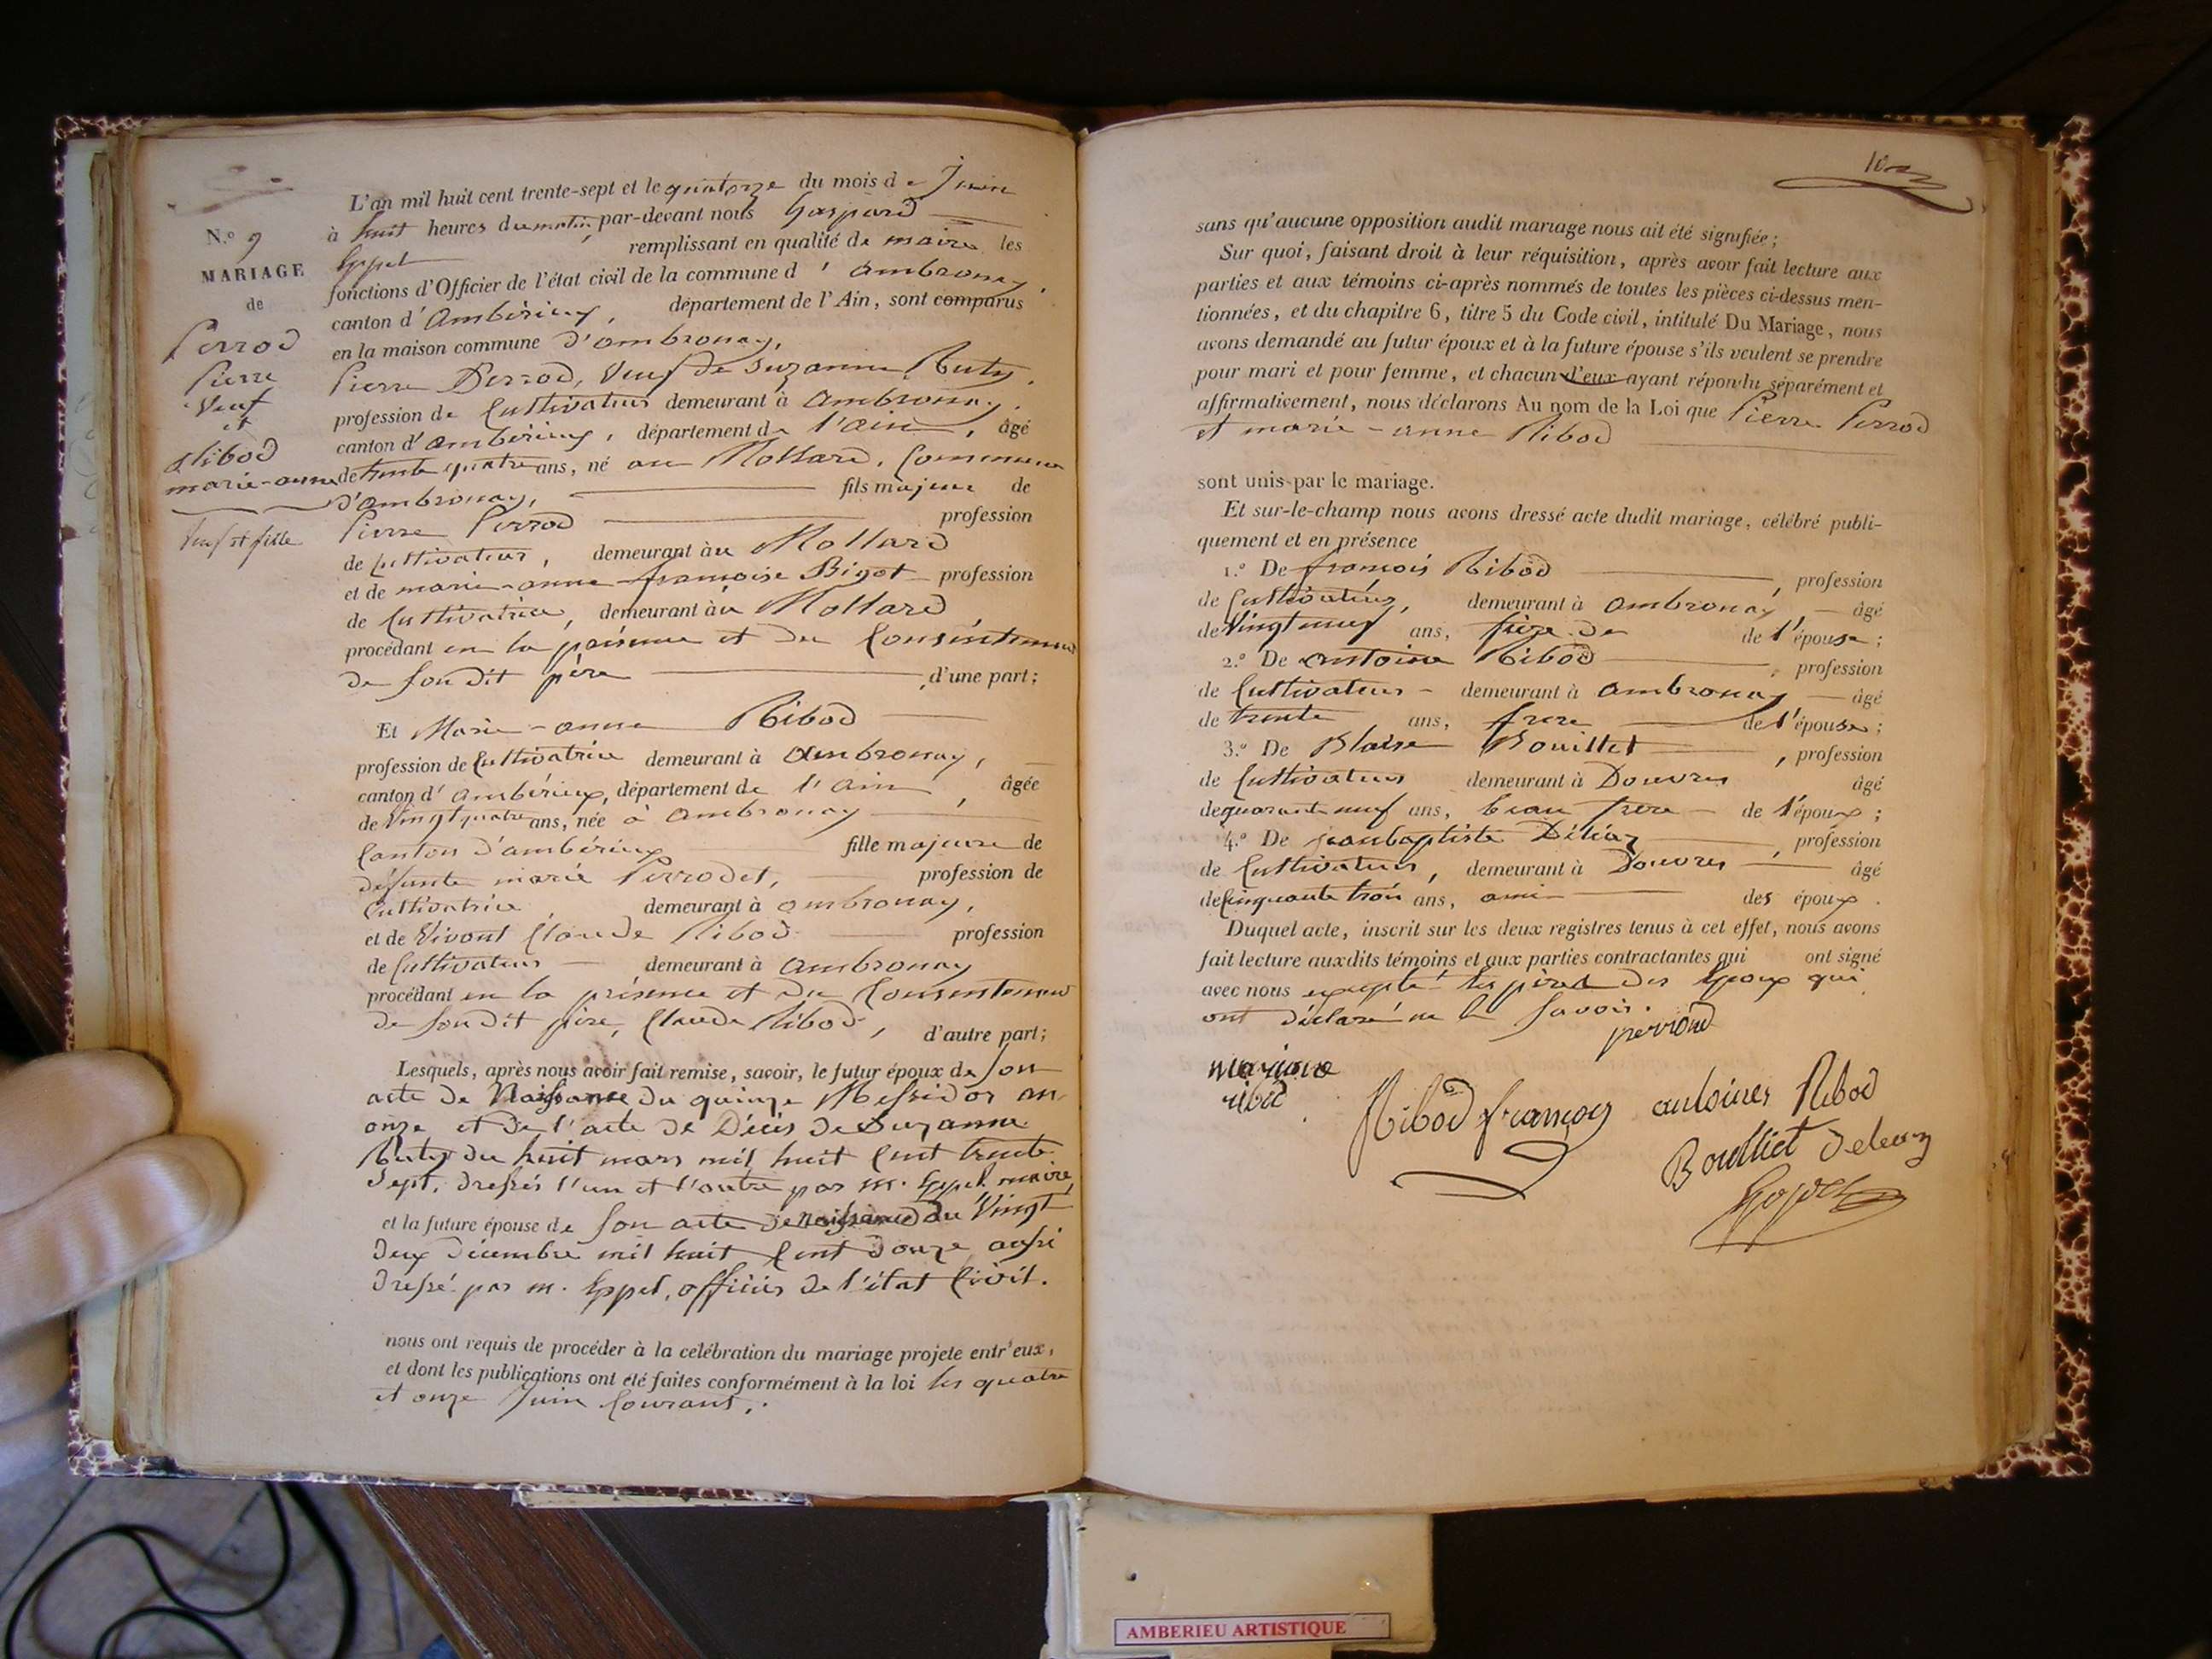 N.º 9
MARIAGE
de
Perrod
Pierre
Veuf
et
Ribod
marie-anne
Veuf et fille
L'an mil huit cent trente-sept et le quatorze du mois de Juin
à huit heures du matin, par-devant nous Gaspard
Eppel remplissant en qualité de maire les
fonctions d'Officier de l'état civil de la commune d'ambronay,
canton d'Ambérieux, département de l'Ain, sont comparus
en la maison commune d'ambronay,
Pierre Perrod, Veuf de Suzanne Ruty,
profession de Cultivateur demeurant à Ambronay,
canton d'ambérieux, département de l'ain, âgé
de trente quatre ans, né au Mollard, Commune
d'ambronay, fils majeur de
Pierre Perrod profession
de Cultivateur, demeurant au Mollard
et de marie-anne-françoise Bigot profession
de Cultivatrice, demeurant au Mollard
procédant en la présence et du Consentement
de son dit père d'une part;
Et Marie-anne Ribod
profession de Cultivatrice demeurant à Ambronay,
canton d'Ambérieux, département de l'ain, âgée
de Vingt quatre ans, née à Ambronay
Canton d'ambérieux fille majeure de
défunte marie Perrodet, profession de
Cultivatrice, demeurant à ambronay,
et de Vivant Claude Ribod profession
de Cultivateur demeurant à Ambronay
procédant en la présence et du Consentement
de son dit père, Claude Ribod, d'autre part;
Lesquels, après nous avoir fait remise, savoir, le futur époux de son
acte de Naissance du quinze Messidor an
onze et de l'acte de Décès de Suzanne
Ruty du huit mars mil huit Cent trente
Sept, dressés l'un et l'autre par m. Eppel maire,
et la future épouse de son acte de naissance du Vingt
deux décembre mil huit Cent douze aussi
dressé par m. Eppel, officier de l'état Civil.
nous ont requis de procéder à la celébration du mariage projete entr'eux,
et dont les publications ont été faites conformément à la loi les quatre
et onze Juin Courant.
10
sans qu'aucune opposition audit mariage nous ait été signifiée;
Sur quoi, faisant droit à leur réquisition, après avoir fait lecture aux
parties et aux témoins ci-après nommés de toutes les pièces ci-dessus men-
tionnées, et du chapitre 6, titre 5 du Code civil, intitulé Du Mariage, nous
avons demandé au futur époux et à la future épouse s'ils veulent se prendre
pour mari et pour femme, et chacun d'eux ayant répondu séparément et
affirmativement, nous déclarons Au nom de la Loi que Pierre Perrod
et marie-anne Ribod
sont unis par le mariage.
Et sur-le-champ nous avons dressé acte dudit mariage, célébré publi-
quement et en présence
1.º De françois Ribod, profession
de Cultivateur, demeurant à Ambronay, âgé
de Vingt neuf ans, frère de de l'épouse;
2.º De antoine Ribod, profession
de Cultivateur demeurant à Ambronay âgé
de trente ans, frere de l'épouse;
3.º De Blaise Bouillet, profession
de Cultivateur demeurant à Douvres âgé
de quarante neuf ans, beau frere de l'époux;
4.º De jeanbaptiste Déléaz, profession
de Cultivateur, demeurant à Douvres âgé
de Cinquante trois ans, ami des époux.
Duquel acte, inscrit sur les deux registres tenus à cet effet, nous avons
fait lecture auxdits témoins et aux parties contractantes qui ont signé
avec nous excepté les pères des Epoux qui
ont déclaré ne le Savoir.
perroud
ribod
Ribod françois antoines Ribod
Boulliet
Eppel
AMBERIEU ARTISTIQUE